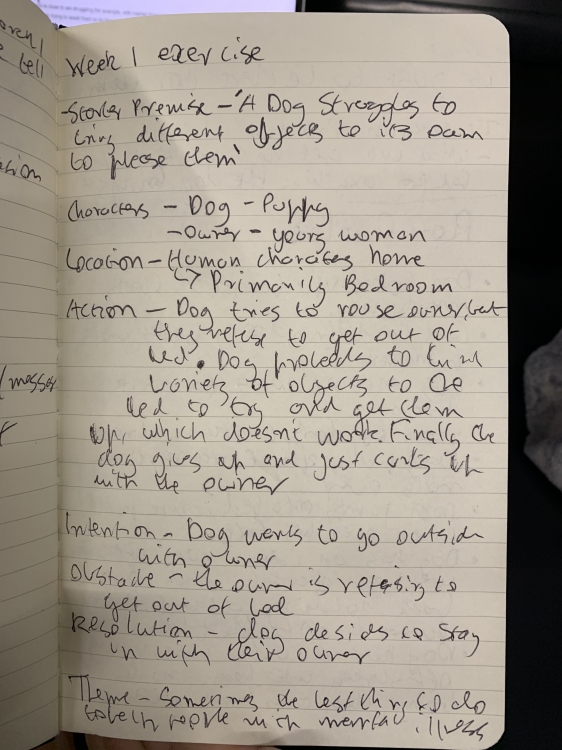 orch /
e tell
Week 1 exercise
- Story Premise - 'A Dog Struggles to
bring different objects to its owner
to please them'
Characters - Dog - Puppy
- Owner - young woman
Location - Human characters home
↳ Primarily Bedroom
Action - Dog tries to rouse owner, but
they refuse to get out of
bed. Dog proceeds to bring
variety of objects to the
bed to try and get them
up, which doesn't work. Finally the
dog gives up and just curls up
with the owner
Intention - Dog wants to go outside
with owner
Obstacle - the owner is refusing to
get out of bed
Resolution - dog desides to stay
in with their owner
Theme - Sometimes the best thing to do
to help people with mental illness